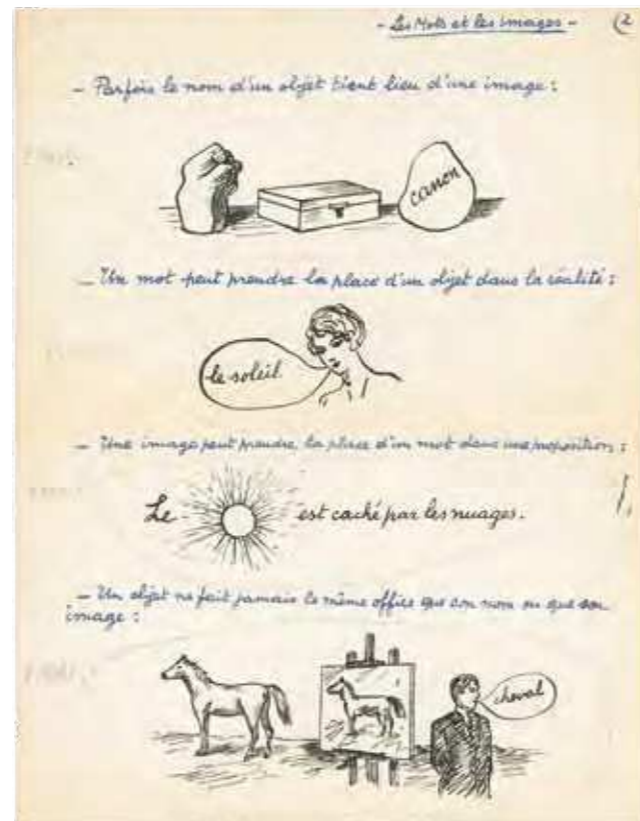 - Les Mots et les images - (2
- Parfois le nom d'un objet tient lieu d'une image :
canon
- Un mot peut prendre la place d'un objet dans la réalité :
le soleil
- Une image peut prendre la place d'un mot dans une proposition :
Le est caché par les nuages.
- Un objet ne fait jamais le même office que son nom ou que son
image :
cheval